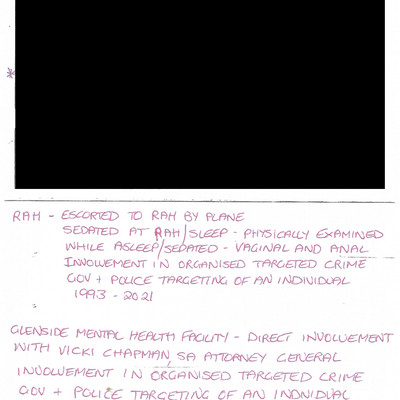 RAH - ESCORTED TO RAH BY PLANE
SEDATED AT RAH/SLEEP - PHYSICALLY EXAMINED
WHILE ASLEEP/SEDATED - VAGINAL AND ANAL
INVOLVEMENT IN ORGANISED TARGETED CRIME
GOV + POLICE TARGETING OF AN INDIVIDUAL
1993 - 2021
GLENSIDE MENTAL HEALTH FACILITY - DIRECT INVOLVEMENT
WITH VICKI CHAPMAN SA ATTORNEY GENERAL
INVOLVEMENT IN ORGANISED TARGETED CRIME
GOV + POLICE TARGETING OF AN INDIVIDUAL